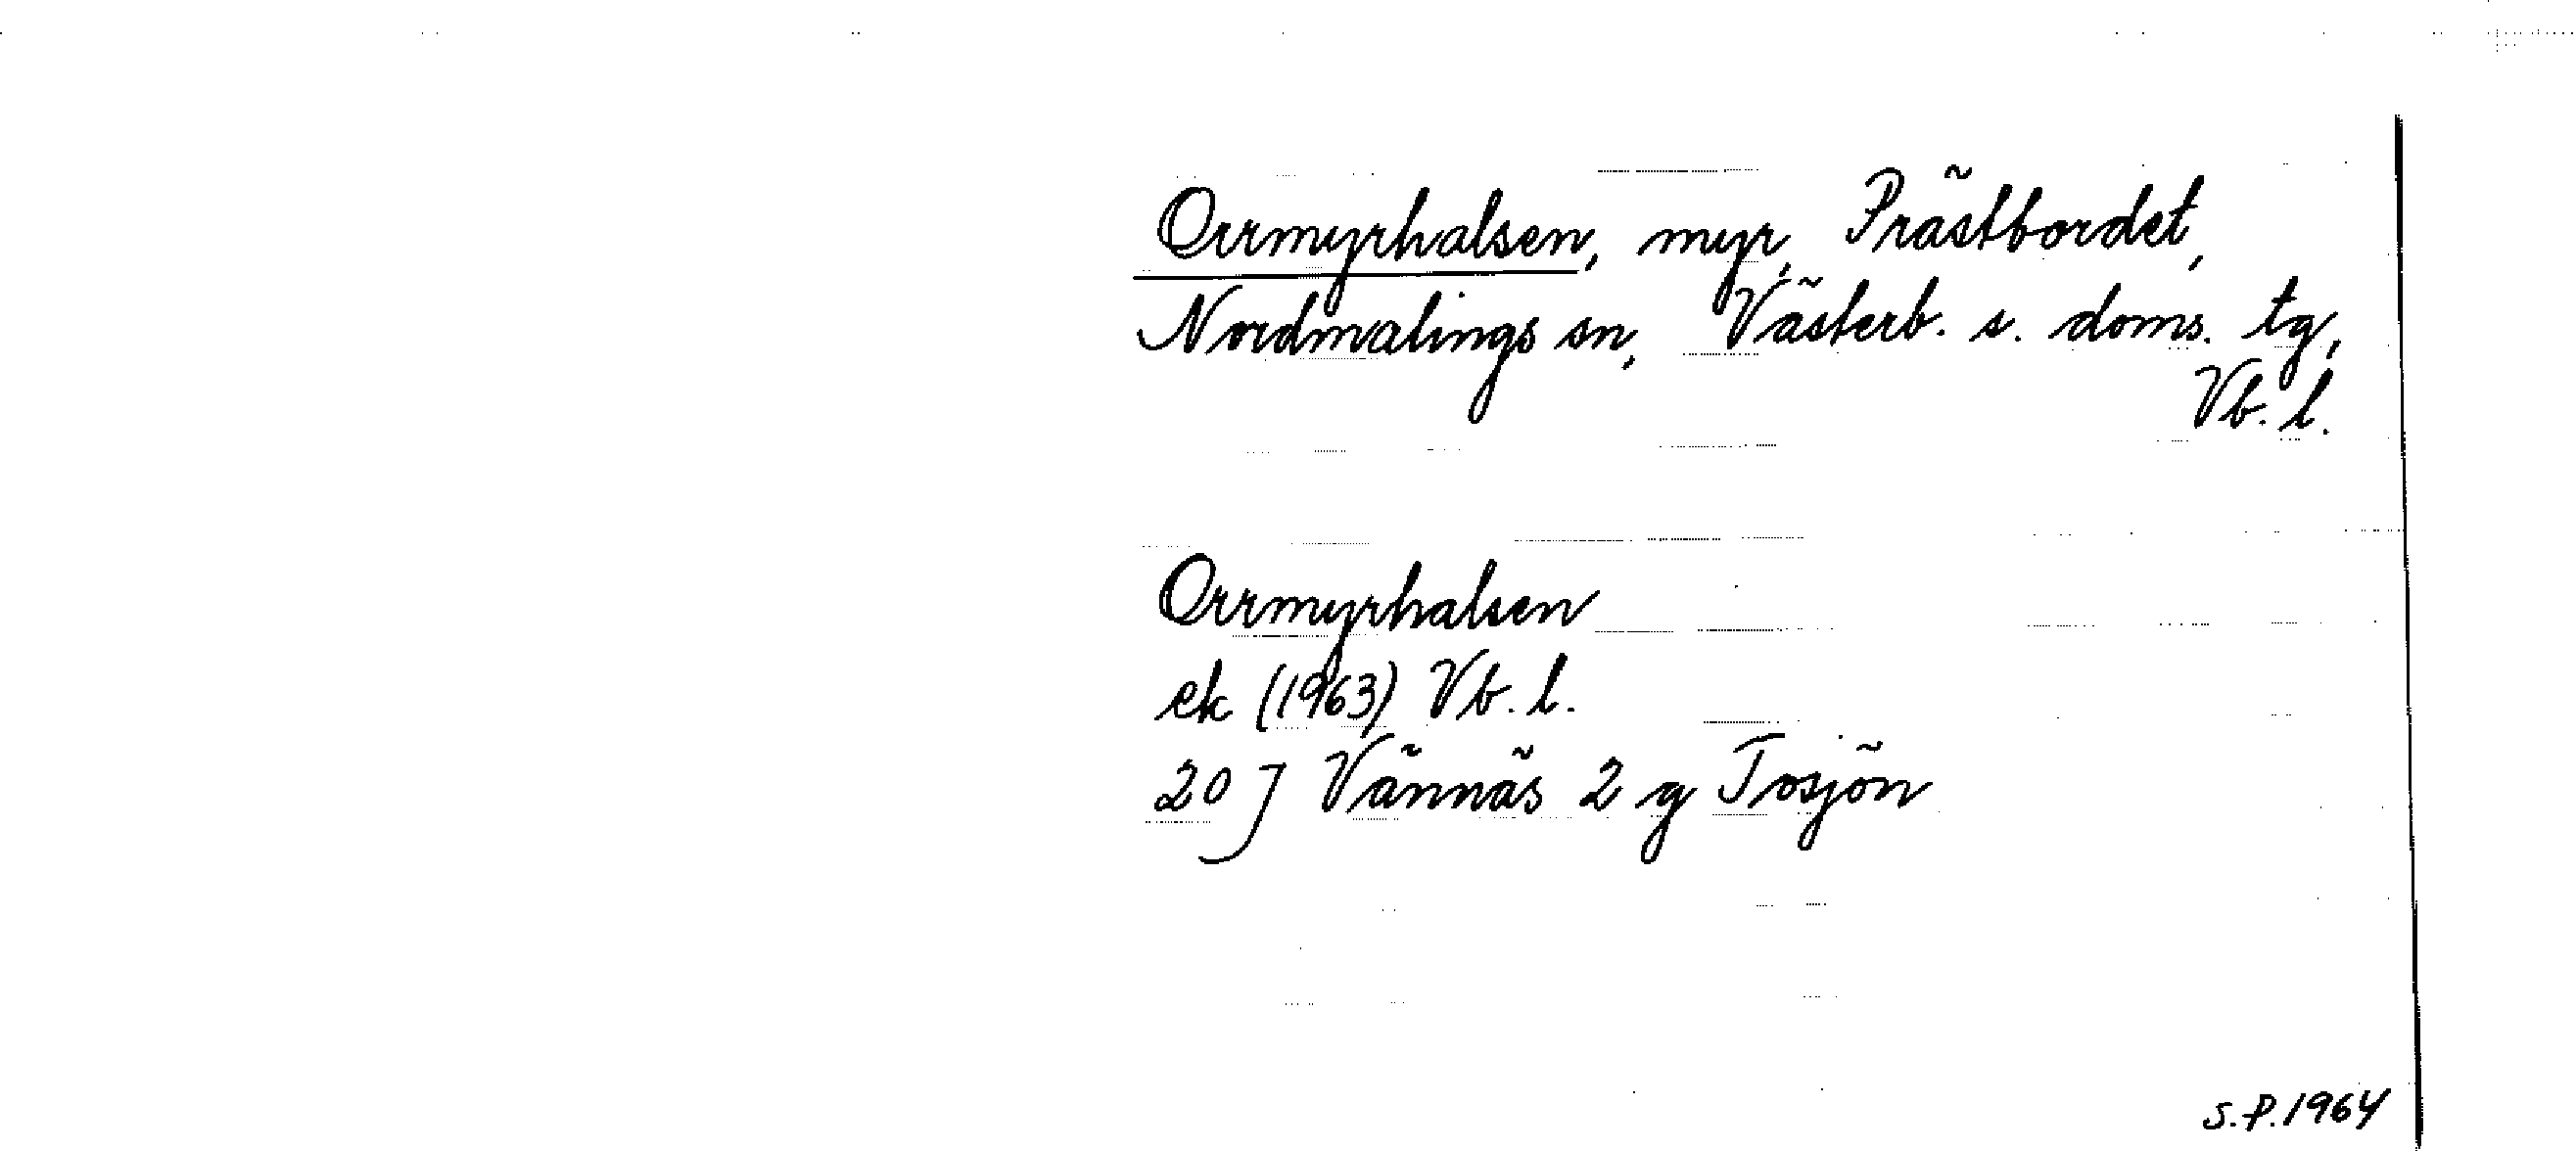 Orrmyrhalsen, myr, Prästbordet,
Nordmalings sn, Västerb. s. doms. tg,
Vb. l.
Orrmyrhalsen
ek (1963) Vb. l.
20 J Vännäs 2 g Tosjön
S.P. 1964